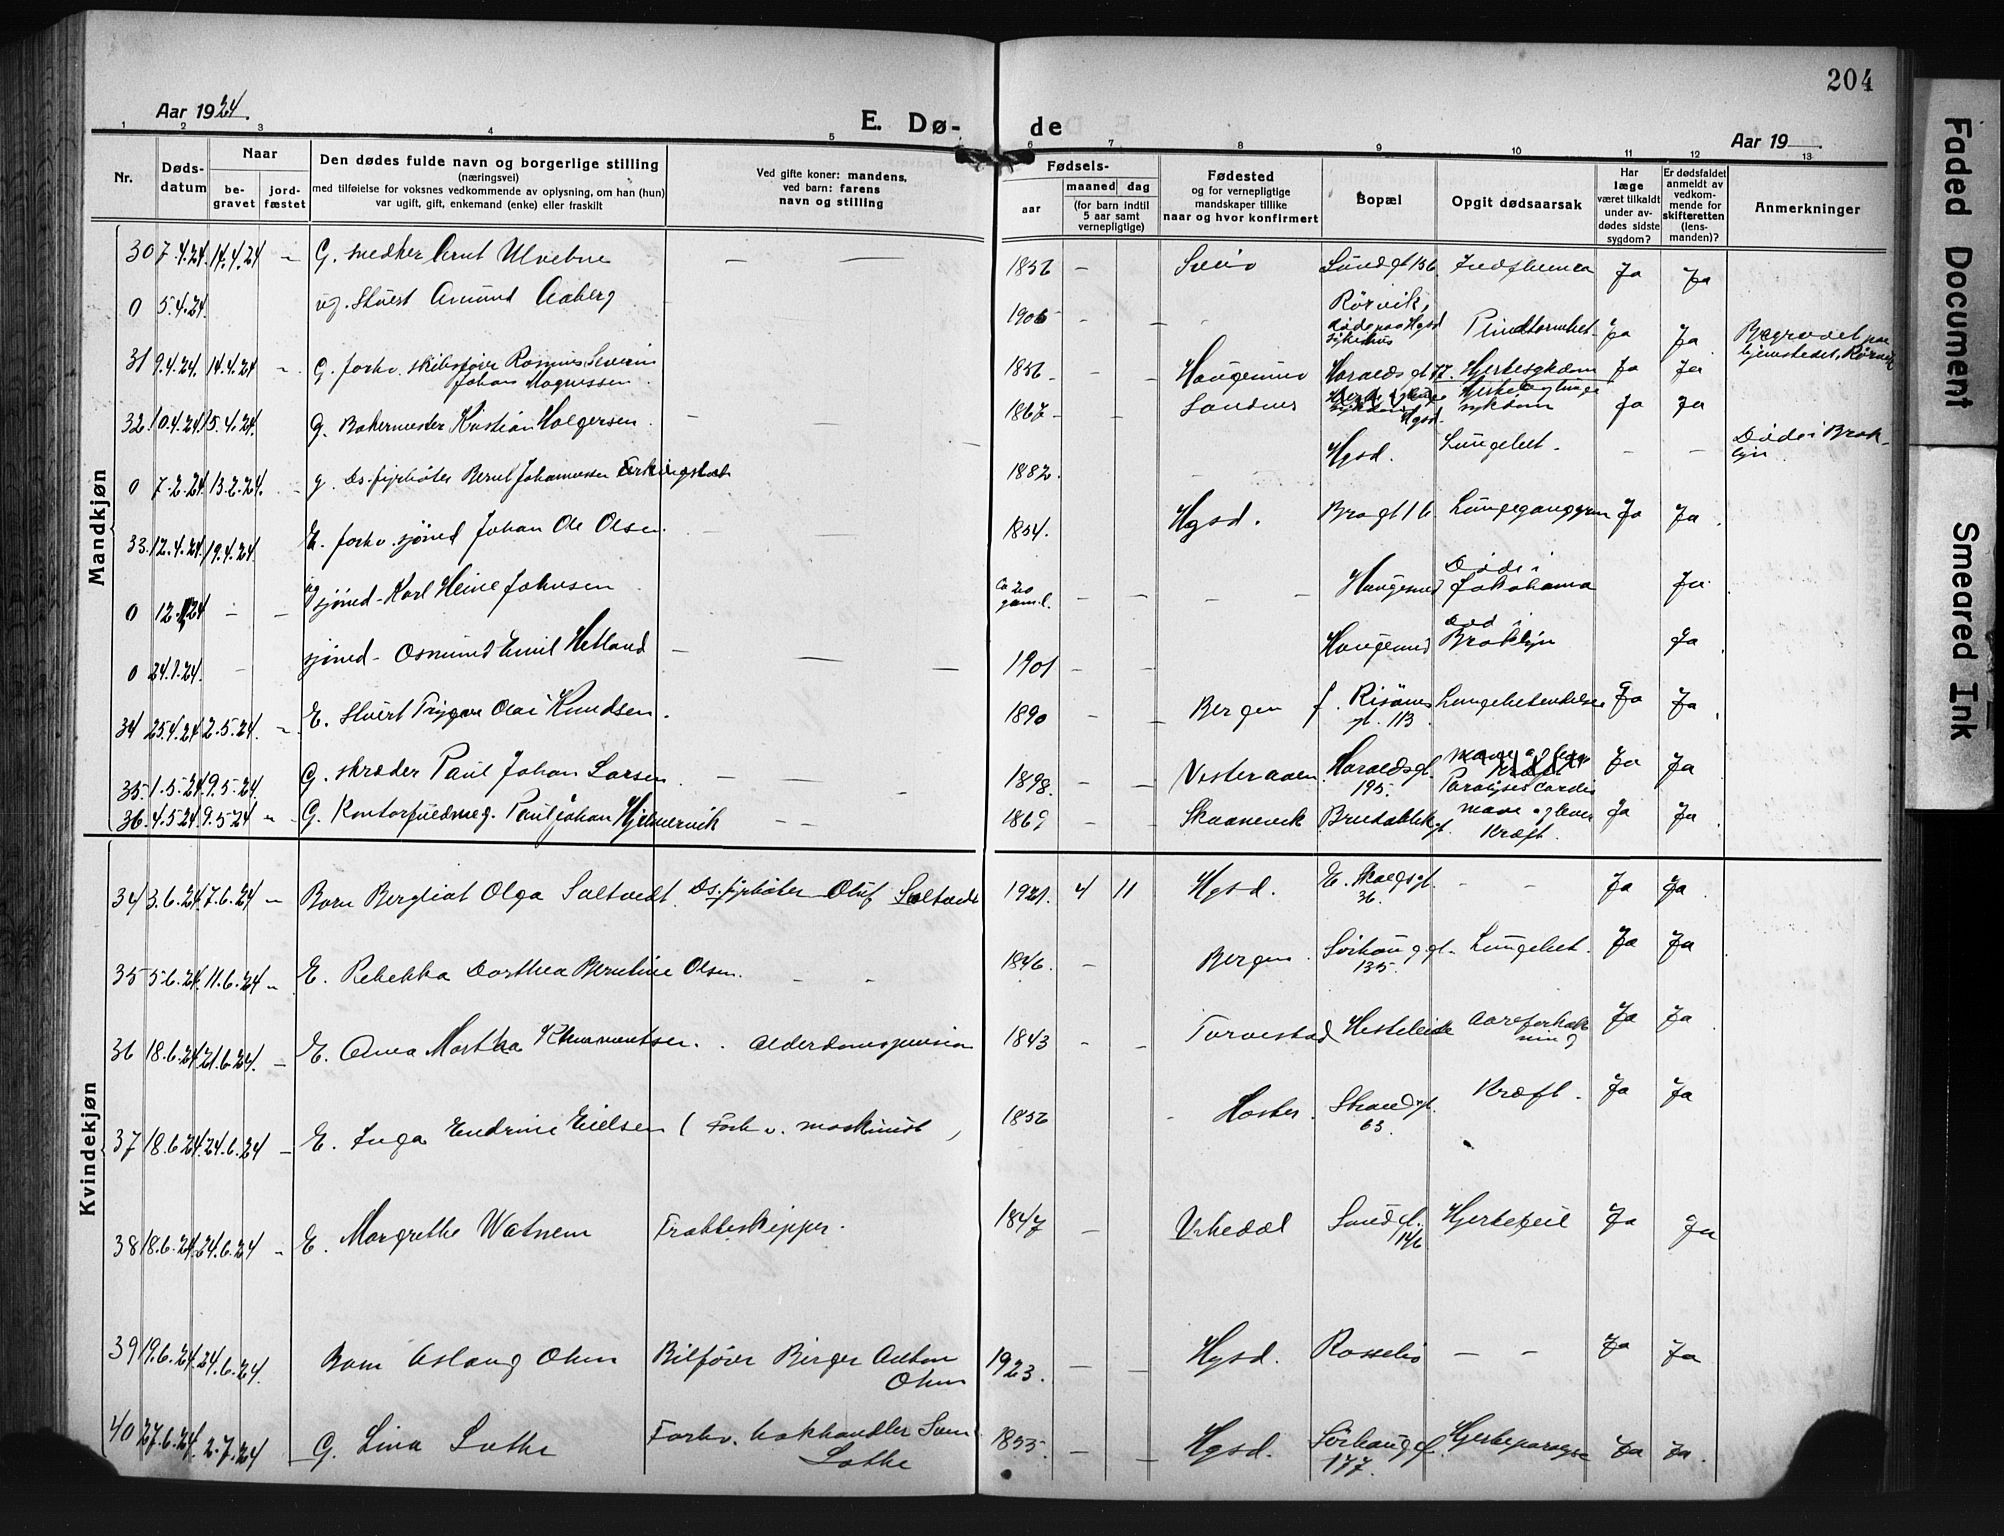 204
Aar 1924.
E. Dø- de
Aar 19
1 2 3 4 5 6 7 8 9 10 11 12 13
Nr.
Døds-datum
Naar
be-gravet
jord-fæstet
Den dødes fulde navn og borgerlige stilling
(næringsvei)
med tilføielse for voksnes vedkommende av oplysning, om han (hun)
var ugift, gift, enkemand (enke) eller fraskilt
Ved gifte koner: mandens,
ved barn: farens
navn og stilling
Fødsels-
aar
maaned dag
(for barn indtil
5 aar samt
vernepligtige)
Fødested
og for vernepligtige
mandskaper tillike
naar og hvor konfirmert
Bopæl
Opgit dødsaarsak
Har
læge
været tilkaldt
under av-
dødes sidste
sygdom?
Er dødsfaldet
anmeldt av
vedkom-
mende for
skifteretten
(lens-
manden)?
Anmerkninger
Mandkjøn
30 7.4.24. 14.4.24 G. snedker Ulvebne 1856 Sveio Sundgt 156 Ja Ja
0 5.4.24. ug. Stuert Amund Aaberg 1906 Rørvik, døde paa Hgsd sykehus Ja Ja Begravet paa hjemstedet, Rørvik
31 9.4.24. 14.4.24 G. forhv. skibsfører Rasmus Severin
Johan Magnessen 1856 Haugesund Haraldsgt 77. Hjertesykdom Ja Ja
32. 10.4.24. 15.4.24. G. Bakermester Kristian Holgersen. 1867 Sandnes Hgsd. Hjerte og lunge
sykdom Ja Ja
0 7.2.24. 13.2.24. g. Ds. fyrbøter Bernt Johannessen Ferkingstad 1882. Hgsd. Lungebet. Døde i Brok-
lyn
33. 12.4.24. 19.4.24. E. forhv. sjømd Johan Ole Olsen. 1854. Hgsd. Brogt 16 Ja Ja
0 ug sjømd - Karl Heine Johnsen ca 20 gaml. Haugesund Døde i
Jokohama Ja
0 24.1.24. sjømd - Osmund Emil Hetland 1901 Haugesund Død i
Broklyn Ja
34 25.4.24 2.5.24. E. Stuert Trygve Olai Knudsen. 1890 Bergen f. Risøens
gt. 113 Lungebetendelse Ja Ja
35 1.5.24. 9.5.24. G. skræder Paul Johan Larsen 1898. Vesteraalen Haraldsgt.
195. Paralysis cordis Ja Ja
36. 4.5.24. 9.5.24 G. Kontorfuldmeg. Paul Johan Hjelmervik 1869 Skaanevik mave og lever
Kræft. Ja Ja
Kvindekjøn
34 3.6.24. 7.6.24 Barn Bergliot Olga Saltvedt. Ds. fyrbøter Oluf Saltvedt 1921. 4 11 Hgsd. E. Skaregt.
36. Ja Ja
35 5.6.24. 11.6.24 E. Rebekka Dorthea Berntine Olsen. 1846. Bergen Sørhauggt.
135. Lungebet. Ja Ja
36 18.6.24. 21.6.24. E. Anna Martha Alderdomspension 1843 Torvestad Aareforkalk
ning Ja Ja
37 18.6.24. 24.6.24 E. Inga Endrine Eielsen (Forhv. maskinist) 1856 Strandgt.
63. Kræft. Ja Ja
38 18.6.24. 24.6.24 E. Margrethe Watnem Fragteskipper. 1847 Vikedal Sundgt.
146 Hjertefeil Ja Ja
39 19.6.24. 24.6.24. Barn Aslaug Ohm Bilfører Birger Anton
Ohm 1923. Hgsd. Ja Ja
40 27.6.24. 2.7.24 G. Lina Lothe Forhv. Sven
Lothe 1855. Hgsd. Sørhauggt.
177. Ja Ja
Faded Document
Smeared Ink